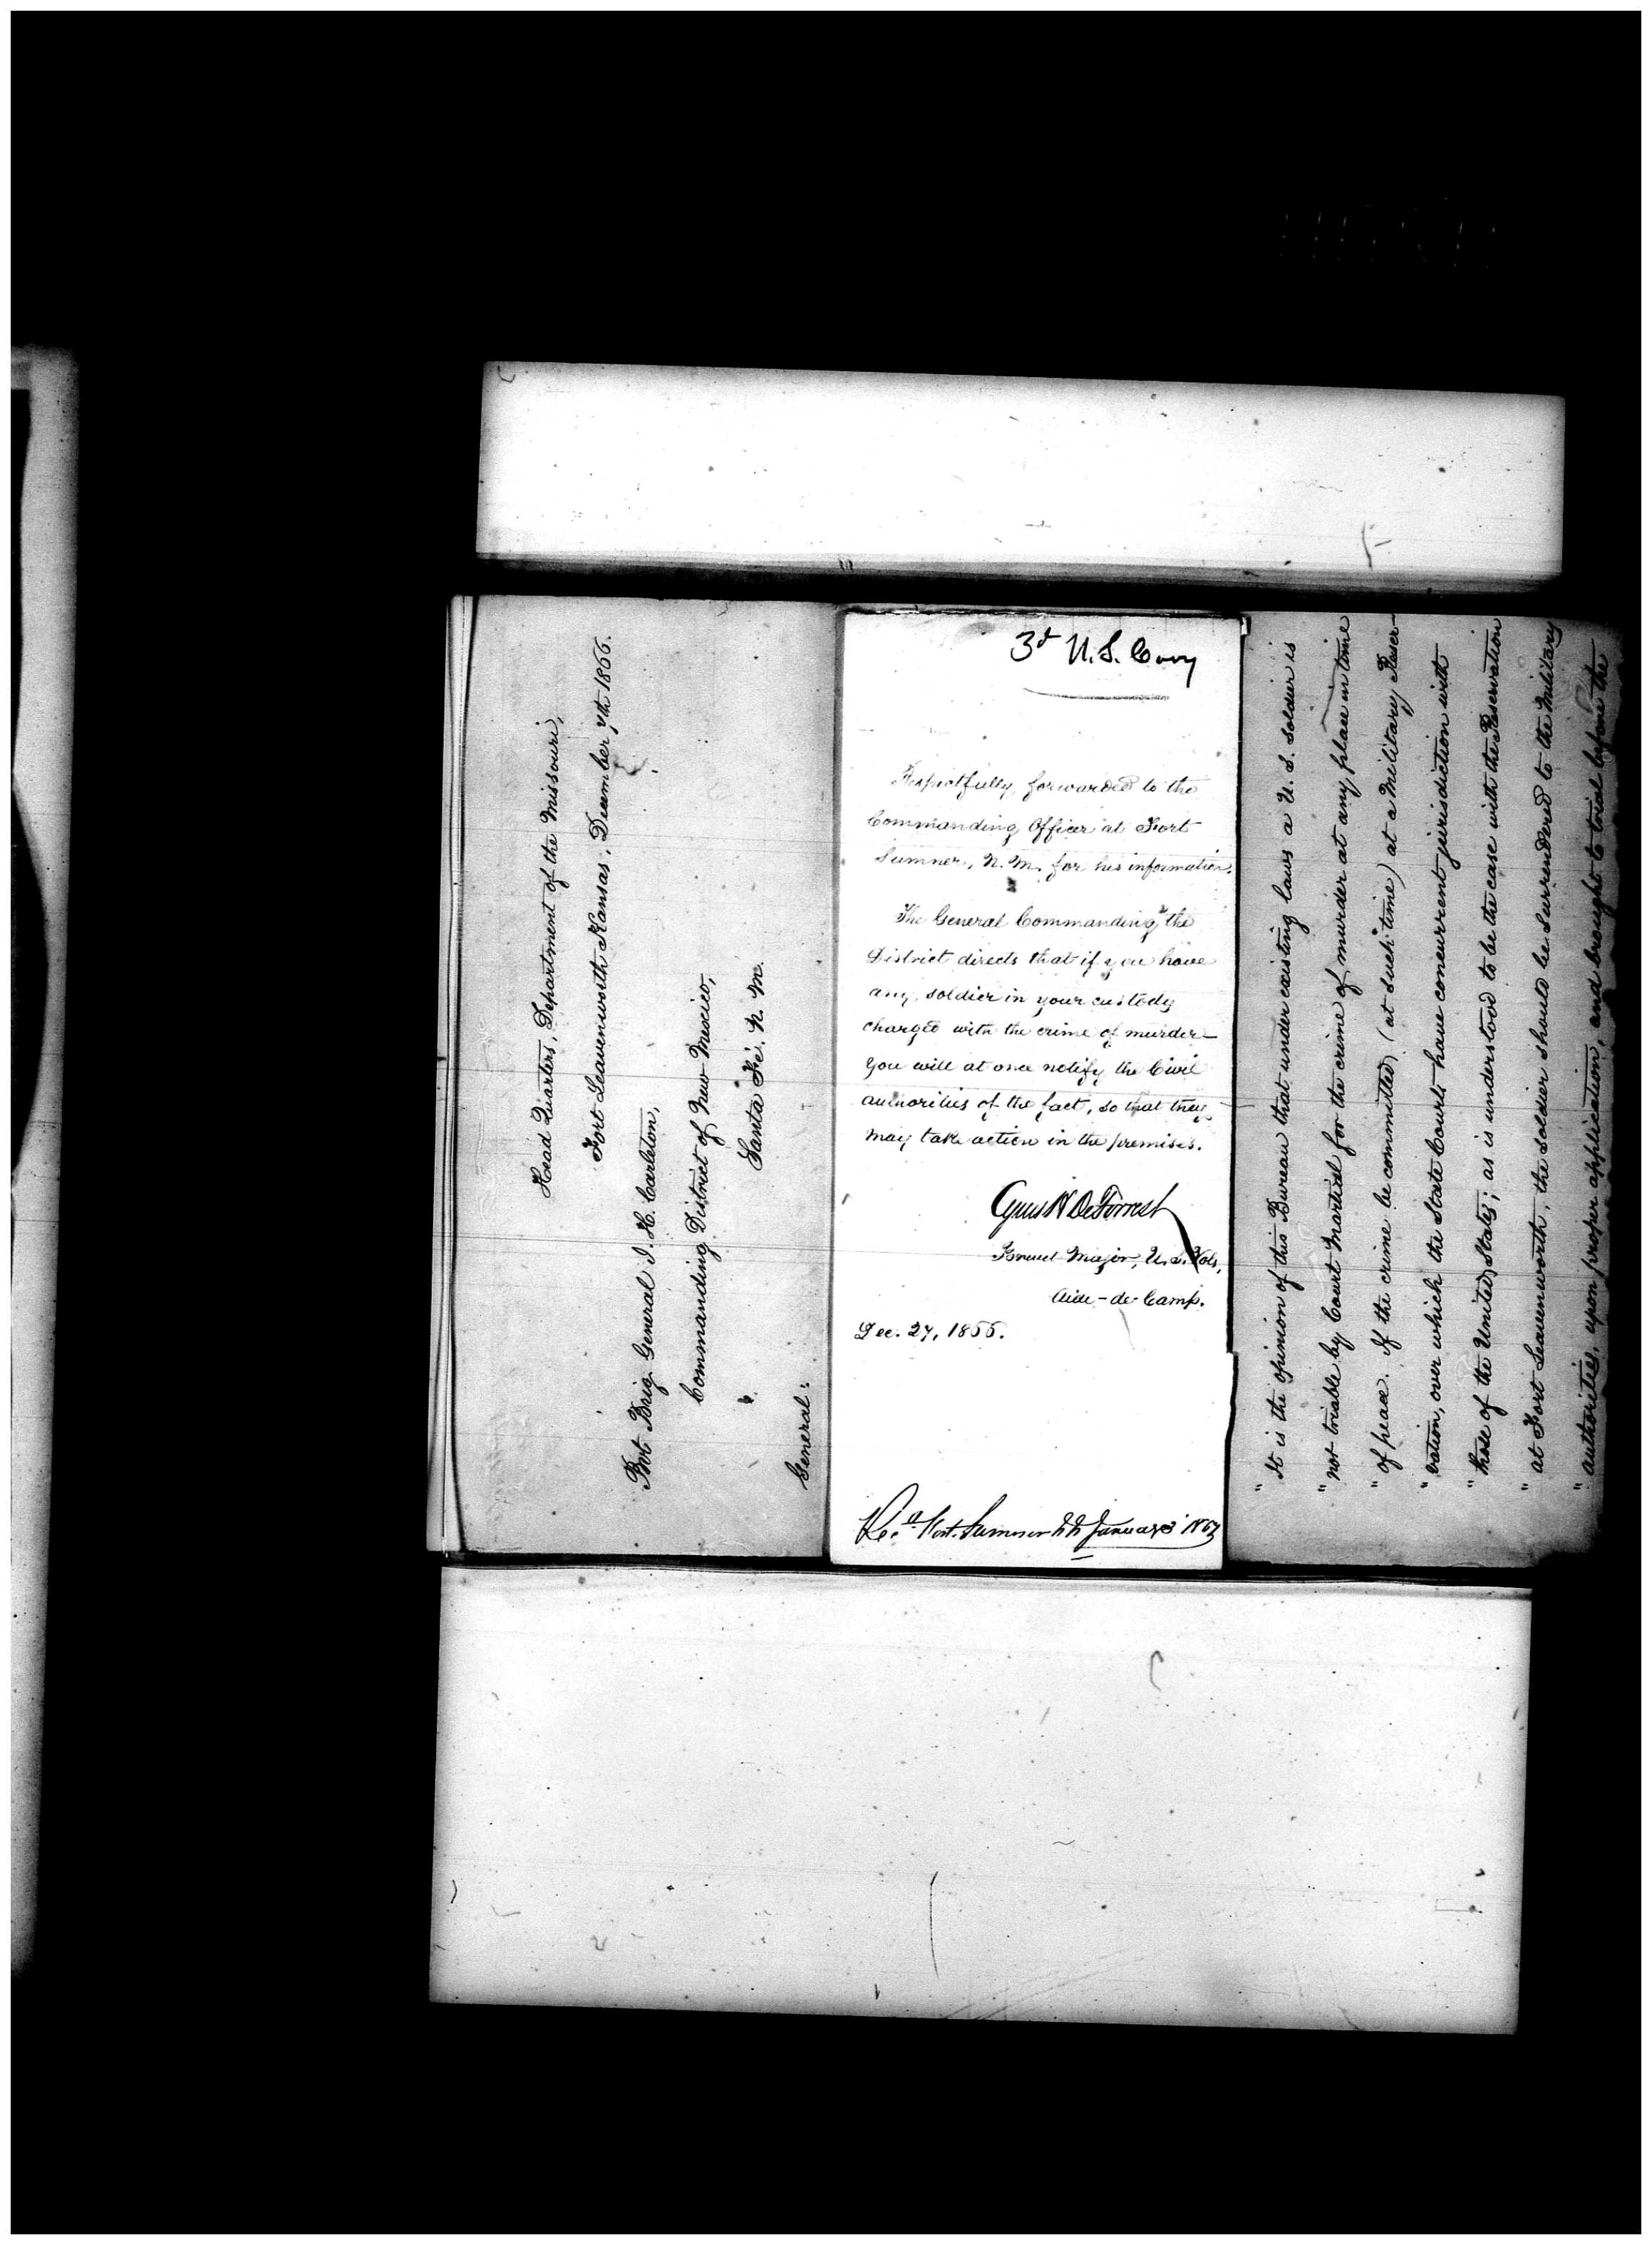 Head Quarters, Department of the Missouri,
Fort Leavenworth Kansas, December 7th 1866.
Bvt Brig General J. H. Carleton,
Commanding District of New Mexico,
Santa Fé. N. M.
General:
3d U.S. Cavy
Respectfully forwarded to the
Commanding Officer at Fort
Sumner, N. M. for his information.
The General Commanding the
District directs that if you have
any soldier in your custody
charged with the crime of murder—
you will at once notify the Civil
authorities of the fact, so that they
may take action in the premises.
Cyrus H DeForrest
Brevet Major, U.S. Vols,
Aide-de-Camp.
Dec. 27, 1866.
Recd Fort Sumner January 1867
"It is the opinion of this Bureau that under existing laws a U. S. soldier is
"not triable by Court Martial for the crime of murder at any place in time
"of peace. If the crime be committed, (at such time) at a Military Reser-
"vation, over which the State Courts have concurrent jurisdiction with
"those of the United States; as is understood to be the case with the Reservation
"at Fort Leavenworth, the soldier should be surrendered to the Military
"authorities, upon proper application, and brought to trial before the